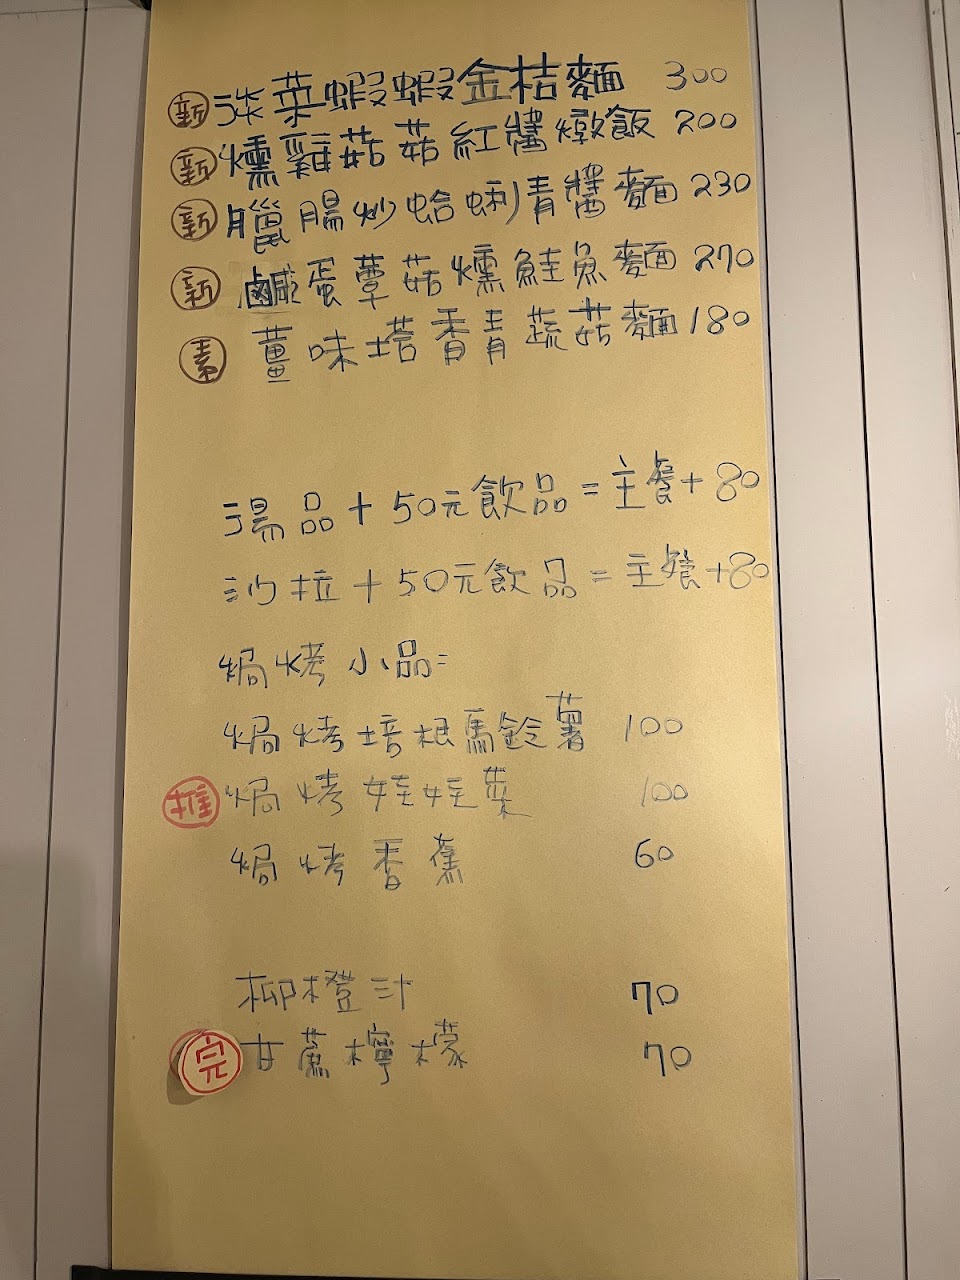 新 淡菜蝦蝦金桔麵 300
新 燻雞菇菇紅醬燉飯 200
新 臘腸炒蛤蜊青醬麵 230
新 鹹蛋蕈菇燻鮭魚麵 270
素 薑味塔香青蔬菇麵 180
湯品+50元飲品=主餐+80
沙拉+50元飲品=主餐+80
焗烤小品=
焗烤培根馬鈴薯 100
推 焗烤娃娃菜 100
焗烤香蕉 60
柳橙汁 70
完 甘蔗檸檬 70